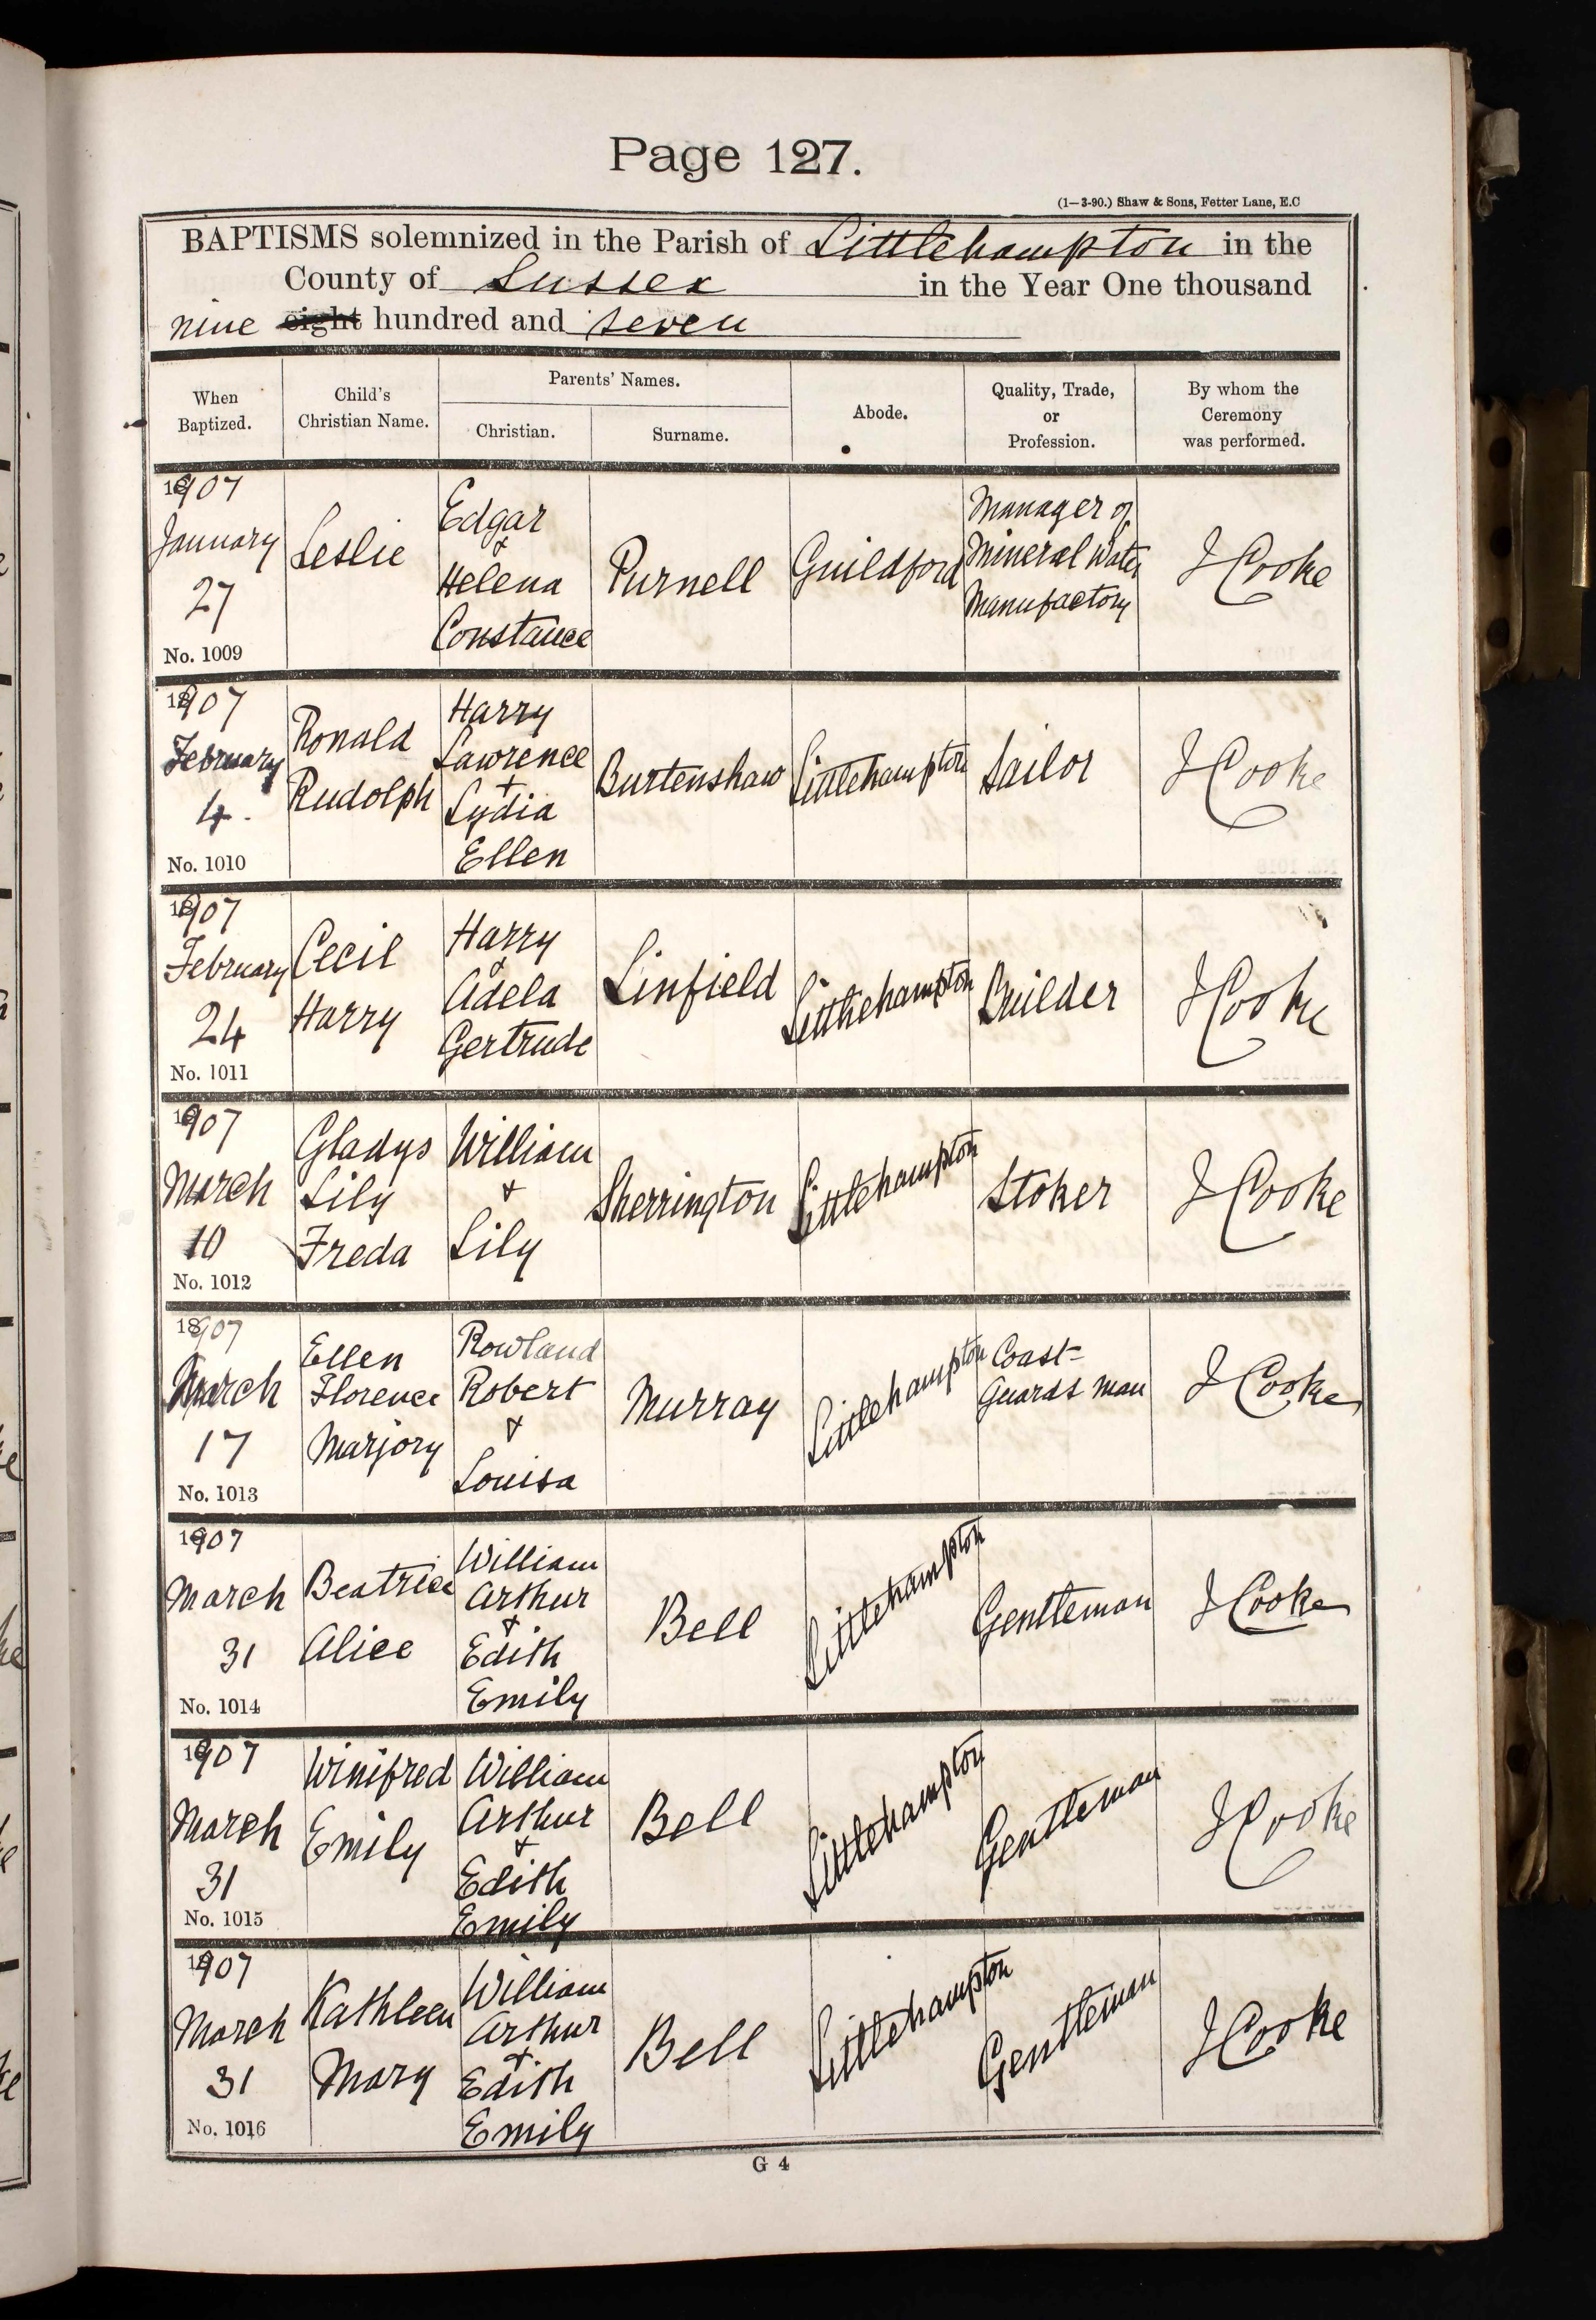 Page 127.
(1—3-90.) Shaw & Sons, Fetter Lane, E.C
BAPTISMS solemnized in the Parish of Littlehampton in the
County of Sussex in the Year One thousand
nine eight hundred and seven
When
Baptized.
Child's
Christian Name.
Parents' Names.
Christian.
Surname.
Abode.
Quality, Trade,
or
Profession.
By whom the
Ceremony
was performed.
1907
January
27
No. 1009
Leslie
Edgar
&
Helena
Constance
Purnell
Guildford
Manager of
Mineral Water
Manufactory
J Cooke
1907
February
4.
No. 1010
Ronald
Rudolph
Harry
Lawrence
+
Lydia
Ellen
Burtenshaw
Littlehampton
Sailor
J Cooke
1907
February
24
No. 1011
Cecil
Harry
Harry
&
Adela
Gertrude
Linfield
Littlehampton
Builder
J Cooke
1907
March
10
No. 1012
Gladys
Lily
Freda
William
&
Lily
Sherrington
Littlehampton
Stoker
J Cooke
1907
March
17
No. 1013
Ellen
Florence
Marjory
Rowland
Robert
&
Louisa
Murray
Littlehampton
Coast-
Guards man
J Cooke
1907
March
31
No. 1014
Beatrice
Alice
William
Arthur
&
Edith
Emily
Bell
Littlehampton
Gentleman
J Cooke
1907
March
31
No. 1015
Winifred
Emily
William
Arthur
&
Edith
Emily
Bell
Littlehampton
Gentleman
J Cooke
1907
March
31
No. 1016
Kathleen
Mary
William
Arthur
+
Edith
Emily
Bell
Littlehampton
Gentleman
J Cooke
G 4